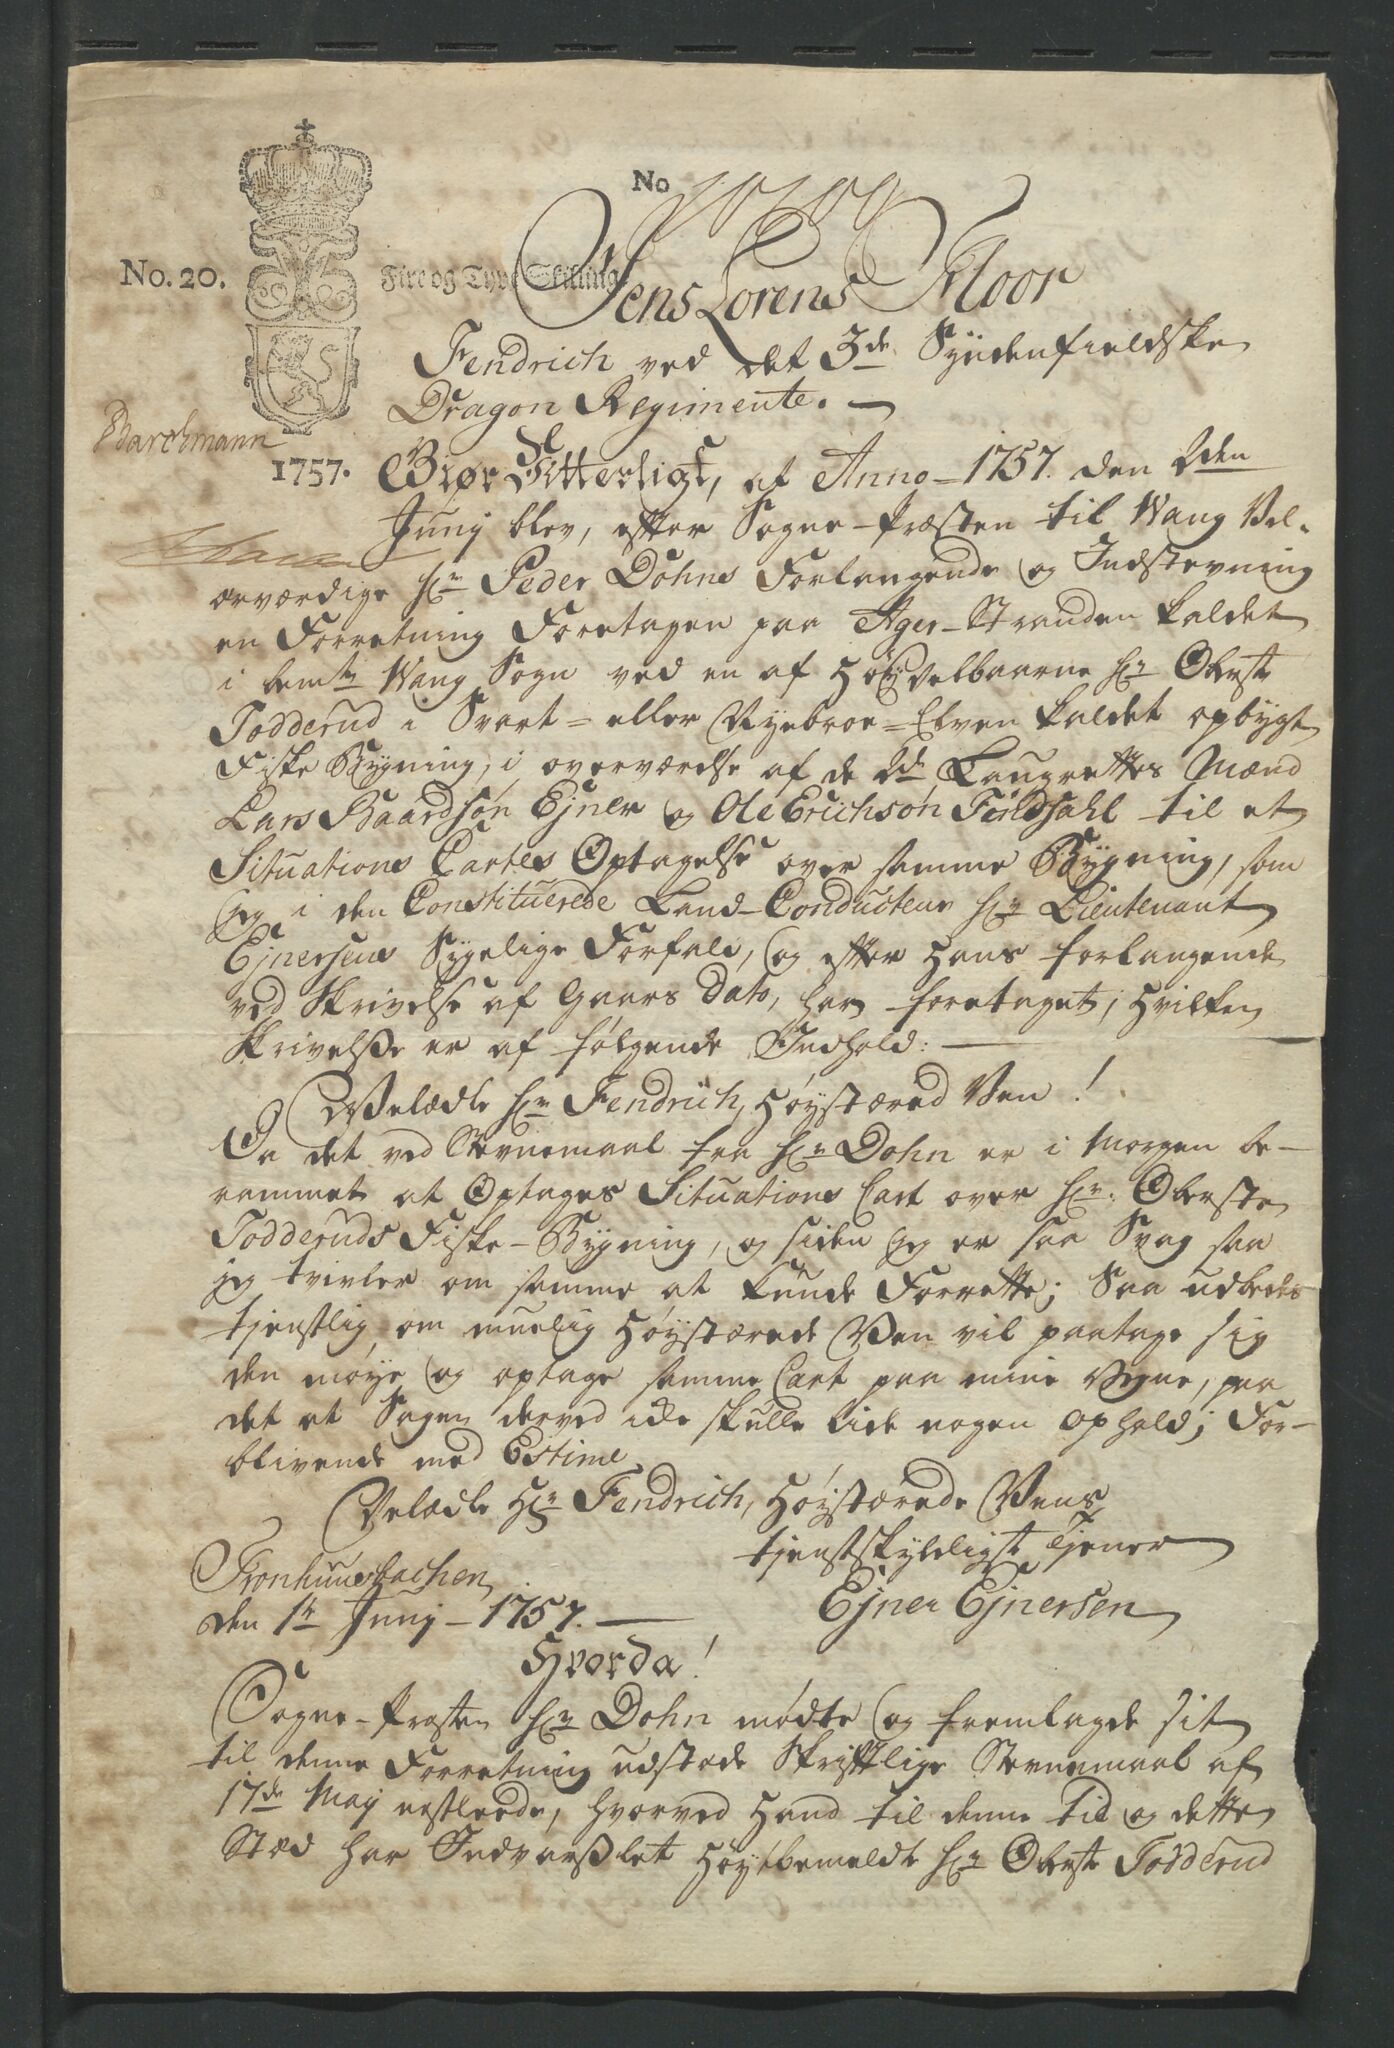 No
No. 20.
Fire og Tyve Skilling
Jens Lorens Floor
Fendrich ved det 3de Syndenfieldske
Dragon Regimente.
1757.
Giør Vitterligt, at Anno 1757. den 2den
Junÿ blev, efter Sogne-Præsten til Wang Vel-
ærværdige Hr. Peder Dohns Forlangende og Indstevning
en Forretning Foretagen paa Ager-Stranden kaldet
i bemte Wang Sogn ved en af Høÿvelbaarne Hr. Oberste
Todderud i Svart- eller Nyebroe-Elven kaldet opbygt
Fiske Bygning, i overværelse af de 2de Laugrettes Mænd
Lars Baardsøn Ejner og Ole Erichsøn Findsahl til et
Situations Cartes Optagelse over samme Bygning, som
jeg i den Constituerede Land-Conducteur Hr. Lieutenant
Ejnersens Sygelige Forfald, og efter Hans forlangende
ved Skrivelse af Gaars Dato, har foretaget; hvilken
Skrivelsse er af følgende Indhold:
VelÆdle Hr. Fendrich, Høÿstærede Ven!
Da det ved Stevnemaal fra Hr. Dohn er i Morgen be-
rammet at Optages Situations Cart over Hr. Oberste
Todderuds Fiske-Bygning, og siden jeg er saa Svag saa
jeg tvivler om samme at kunde Forrette; Saa udbedes
tjenstlig om muelig Høÿstærede Ven vil paatage sig
den møÿe og optage samme Cart paa mine Vegne, paa
det at Sagen derved icke skulle lide nogen ophold; For-
blivende med Estime
VelÆdle Hr. Fendrich, Høÿstærede Vens
tjenstskyldigst Tjener
Fronhuusbachen
den 1te Junÿ 1757.
Ejner Ejnersen
Hvorda!
Sogne-Præsten Hr. Dohn mødte og fremlagde sit
til denne Forretning udstæde Skriftlige Stevnemaal af
17de Maÿ nestleede, hvorved Hand til denne Tid og dette
Stæd har Indvarslet Høÿtbemeldte Hr. Oberste Todderud